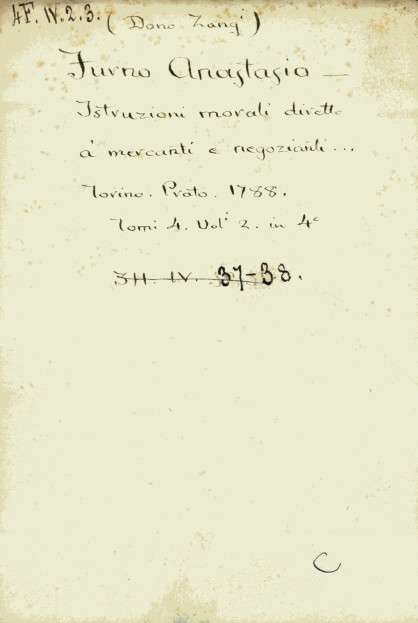 4F. IV. 2. 3. (Dono Zangi)
Furno Anastasio —
Istruzioni morali dirette
á mercanti e negozianti ...
Torino. Prato. 1788.
Tomi 4. Vol.i 2. in 4°
3H. IV. 37-38.
C